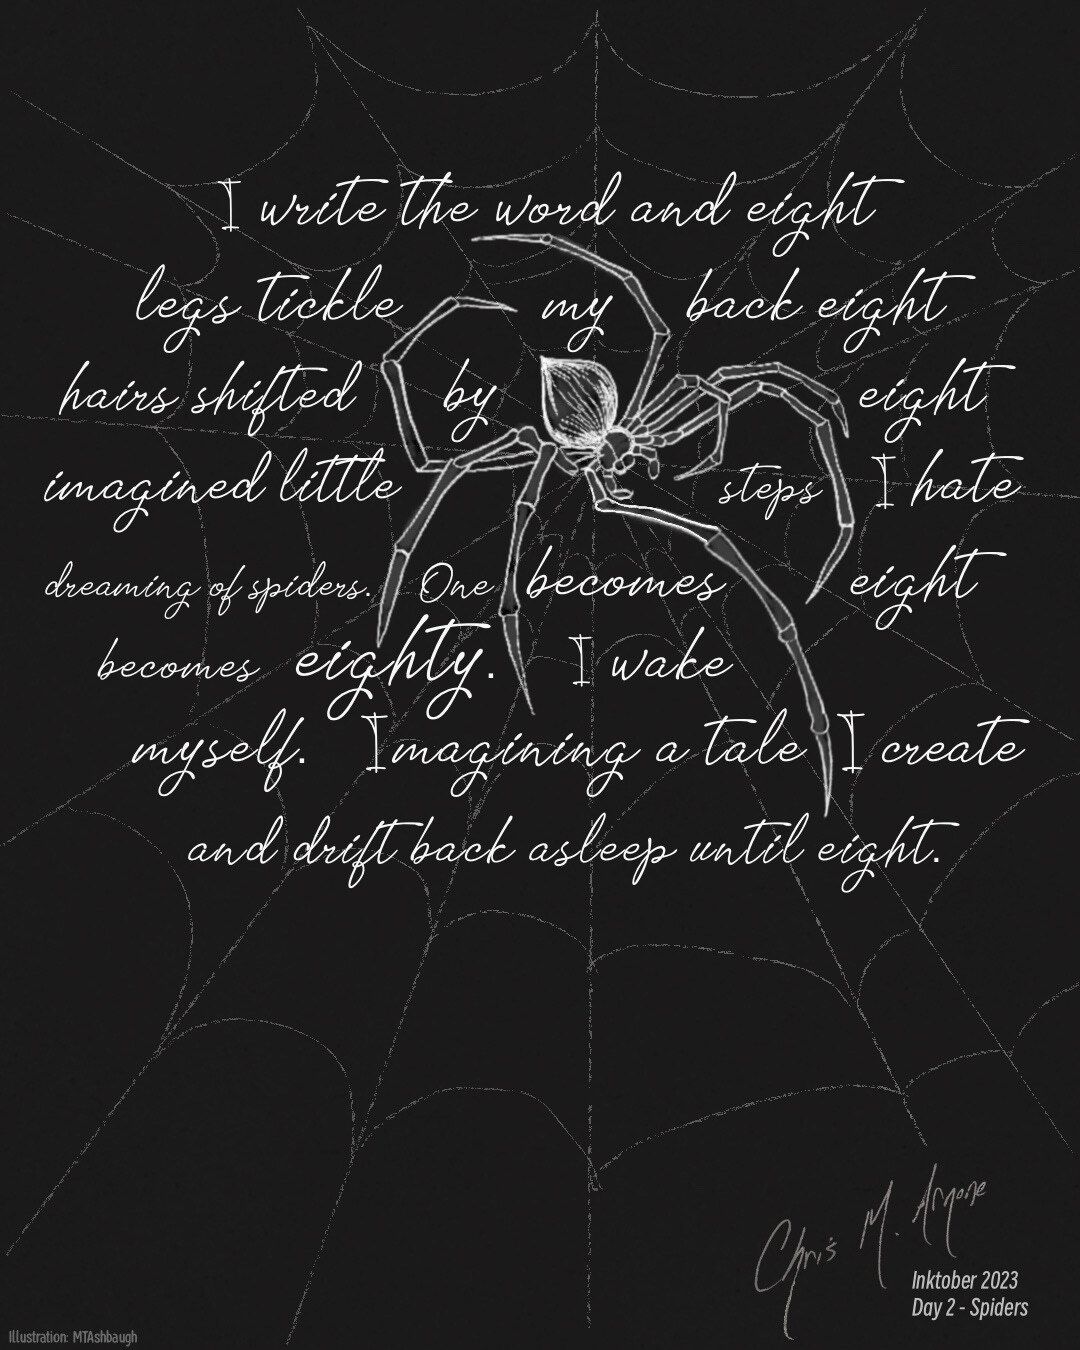 I write the word and eight
legs tickle my back eight
hairs shifted by eight
imagined little steps I hate
dreaming of spiders. One becomes eight
becomes eighty. I wake
myself. Imagining a tale I create
and drift back asleep until eight.
Chris M. Arnone
Inktober 2023
Day 2 - Spiders
Illustration: MTAshbaugh